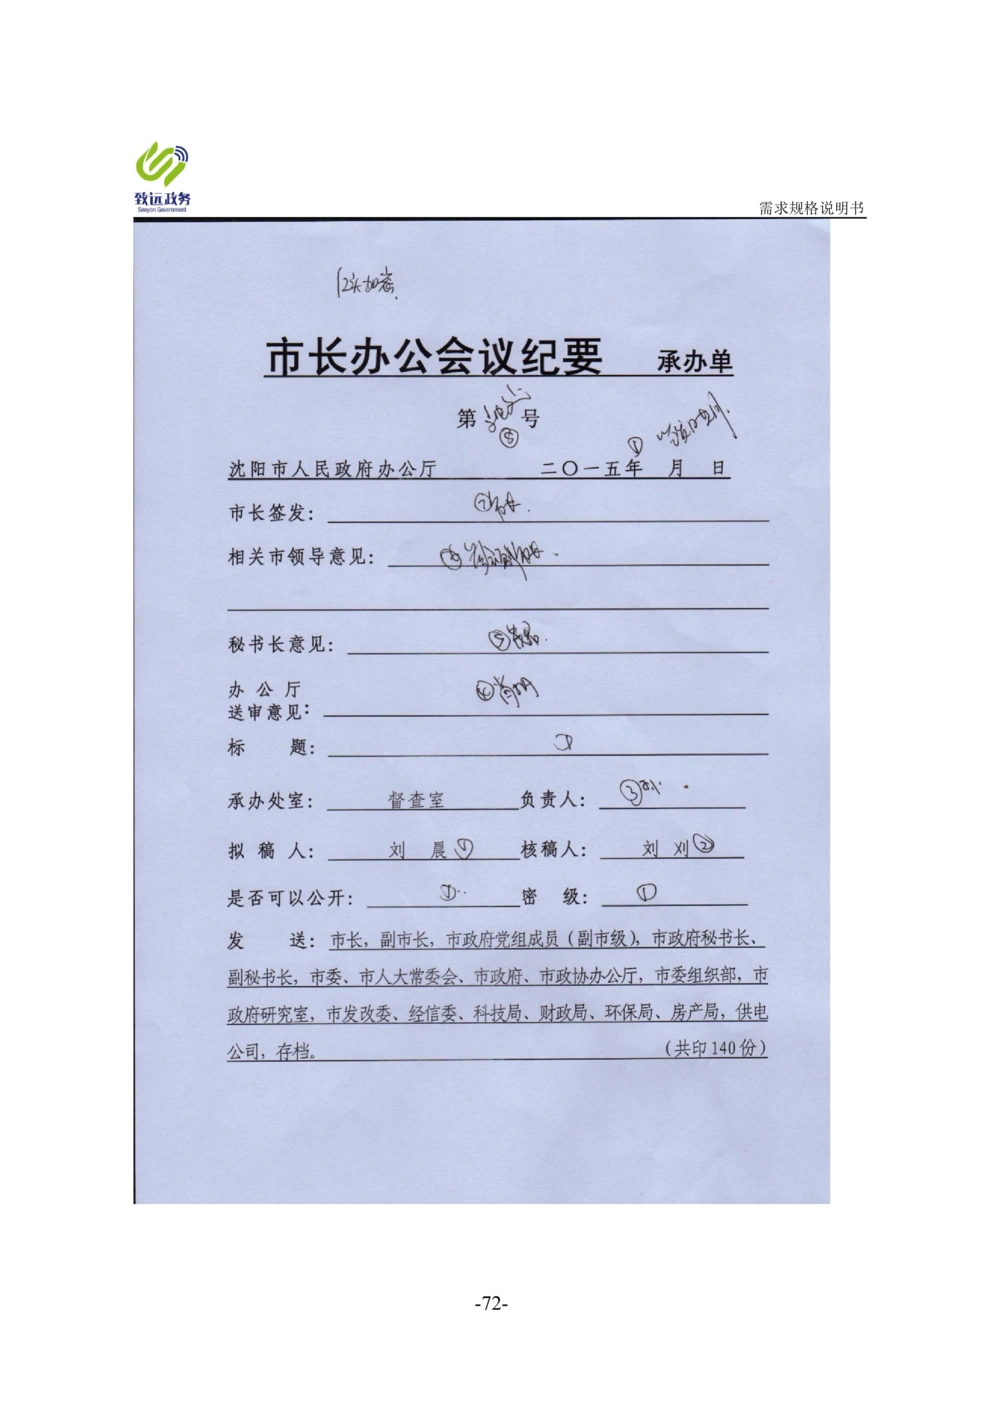 致远政务
Seeyon Government
需求规格说明书
市长办公会议纪要 承办单
第 号
⑧ ①
沈阳市人民政府办公厅 二〇一五年 月 日
市长签发：
相关市领导意见：
秘书长意见：⑤
办公厅
送审意见：
标 题：①
承办处室： 督查室 负责人：③
拟稿人： 刘 晨① 核稿人： 刘 刈②
是否可以公开：① 密 级：①
发 送：市长，副市长，市政府党组成员（副市级），市政府秘书长、
副秘书长，市委、市人大常委会、市政府、市政协办公厅，市委组织部，市
政府研究室，市发改委、经信委、科技局、财政局、环保局、房产局，供电
公司，存档。 （共印140份）
-72-